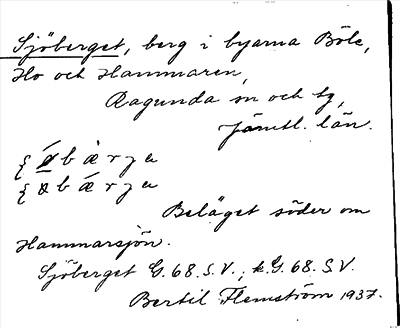 Sjöberget, berg i byarna Böle,
Ho och Hammaren,
Ragunda sn och tg,
Jämtl. län.
bärja
bärja
Beläget söder om
Hammarsjön.
Sjöberget G. 68. S. V.; k G. 68. S. V.
Bertil Flemström 1937.